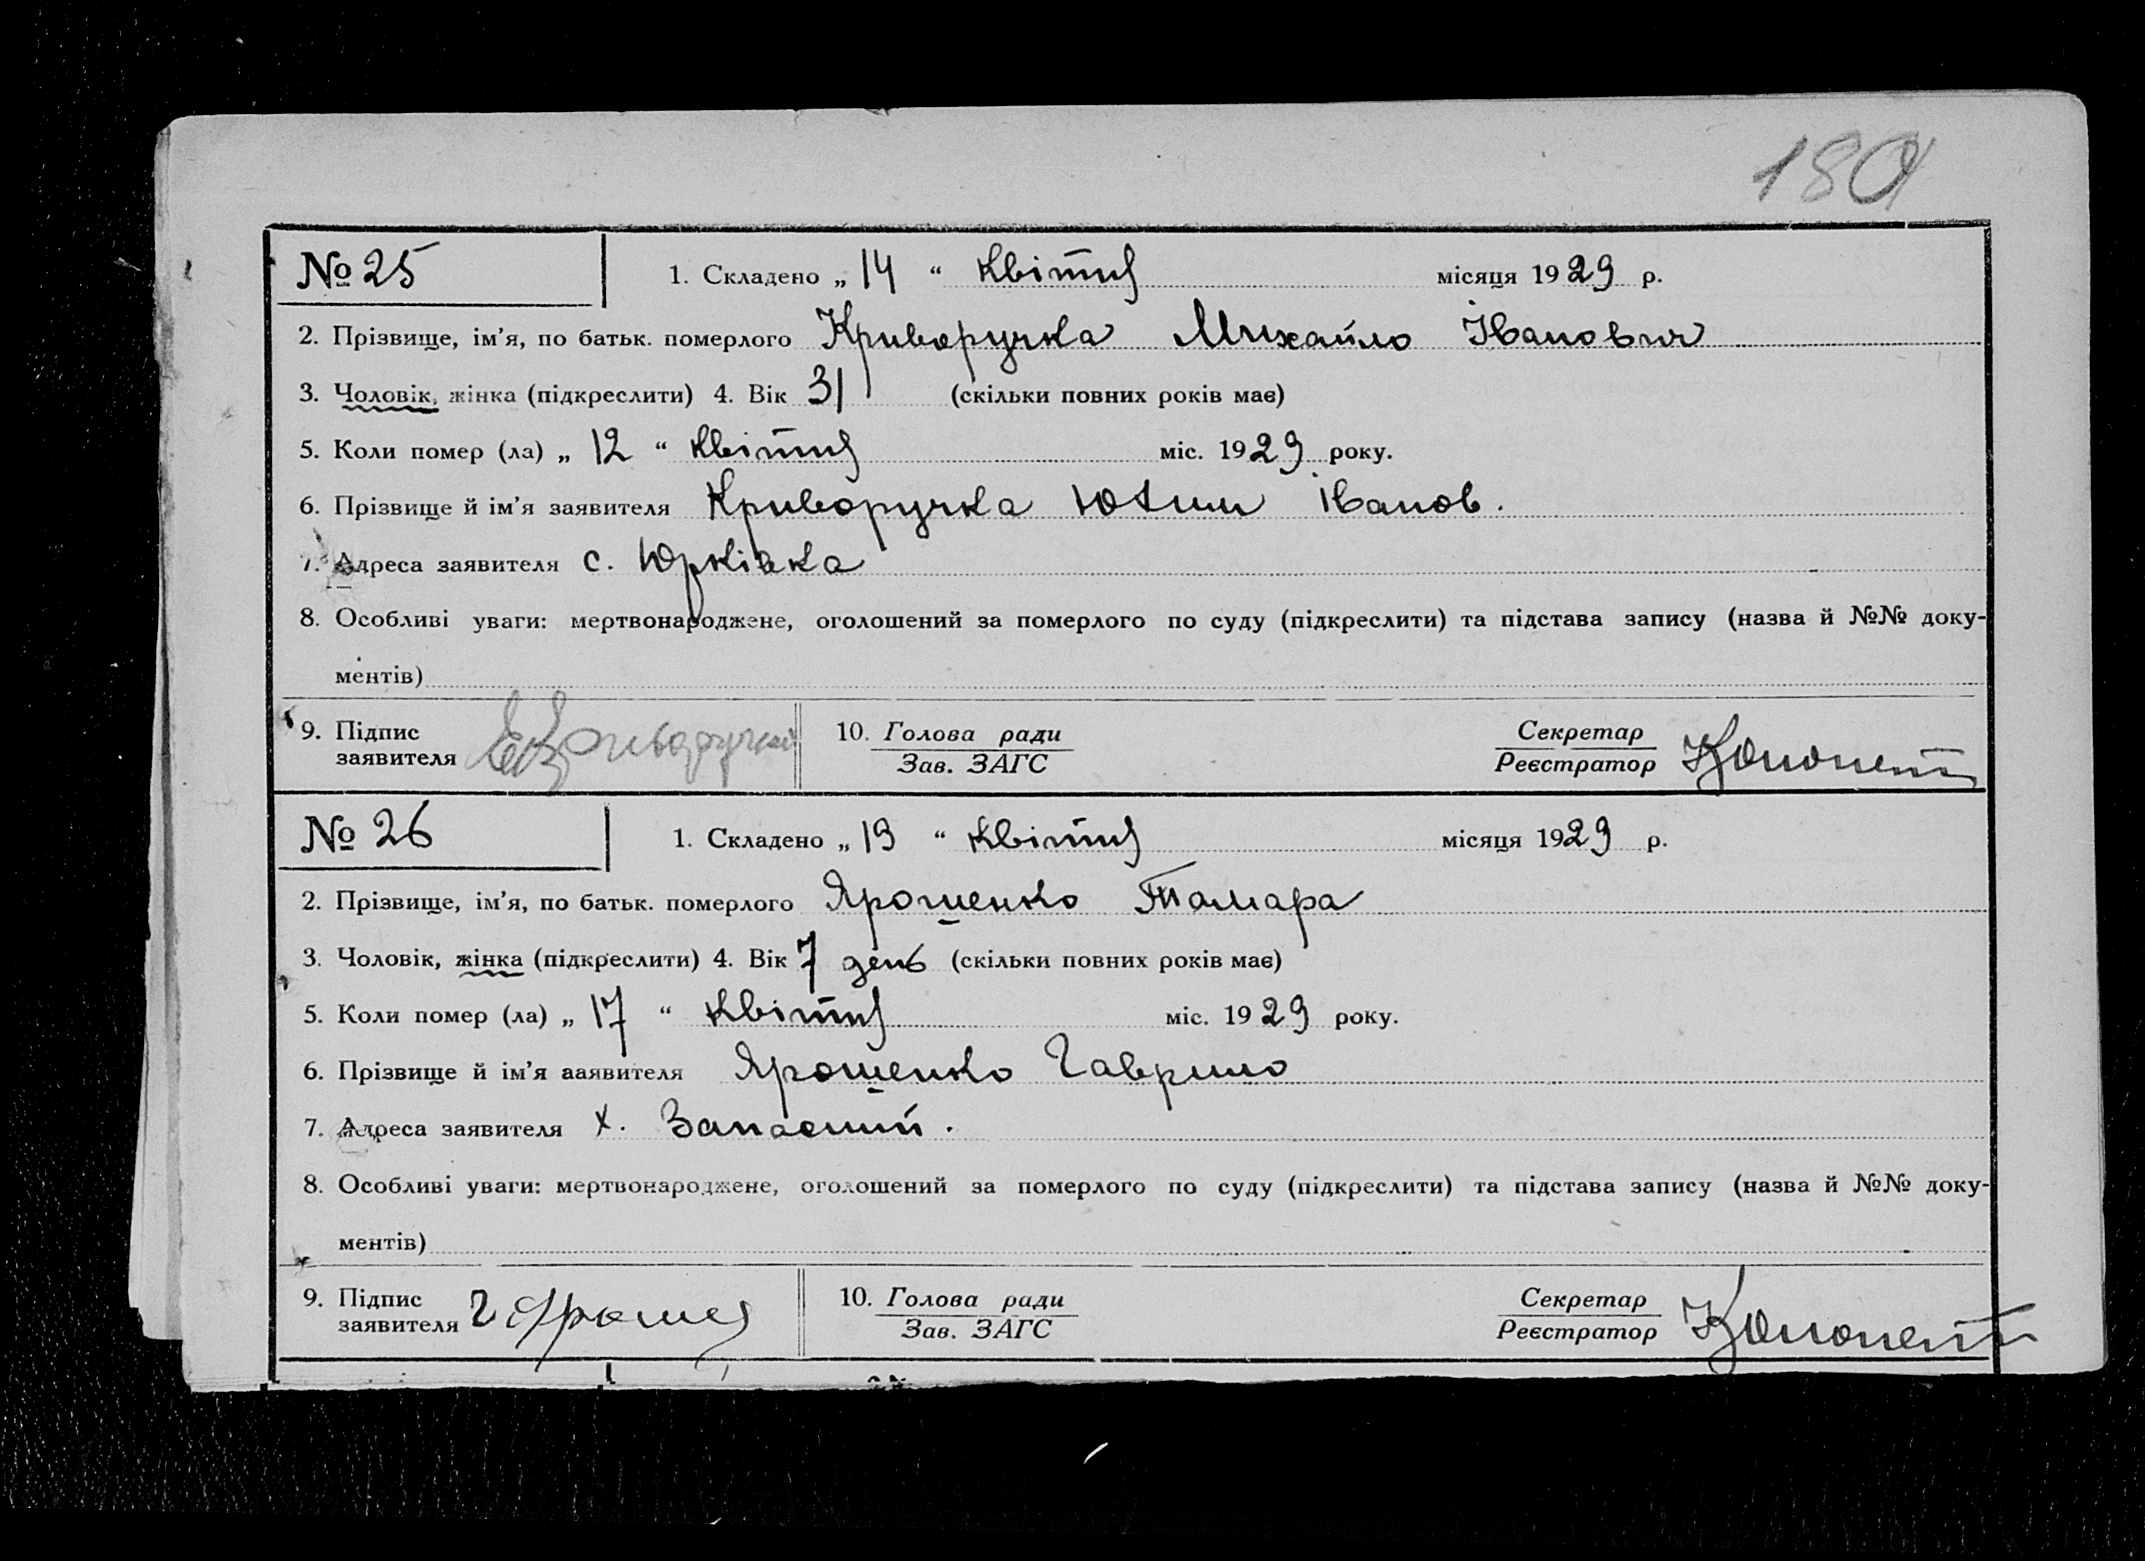 180
№ 25 1. Складено „ 14 “ Квітня місяця 1929 р.
2. Прізвище, ім’я, по батьк. померлого Криворучка Михайло Іванович
3. Чоловік, жінка (підкреслити) 4. Вік 31 (скільки повних років має)
5. Коли помер (ла) „ 12 “ Квітня міс. 1929 року.
6. Прізвище й ім’я заявителя Криворучка Юхим Іванов.
7. Адреса заявителя с. Юрківка
8. Особливі уваги: мертвонароджене, оголошений за померлого по суду (підкреслити) та підстава запису (назва й №№ доку-
ментів)
9. Підпис заявителя Е Криворучка 10. Голова ради Зав. ЗАГС Секретар Реєстратор
№ 26 1. Складено „ 19 “ Квітня місяця 1929 р.
2. Прізвище, ім’я, по батьк. померлого Ярошенко Тамара
3. Чоловік, жінка (підкреслити) 4. Вік 7 день (скільки повних років має)
5. Коли помер (ла) „ 17 “ Квітня міс. 1929 року.
6. Прізвище й ім’я ааявителя Ярошенко Гаврило
7. Адреса заявителя х. Запасний.
8. Особливі уваги: мертвонароджене, оголошений за померлого по суду (підкреслити) та підстава запису (назва й №№ доку-
ментів)
9. Підпис заявителя Г Яроше 10. Голова ради Зав. ЗАГС Секретар Реєстратор